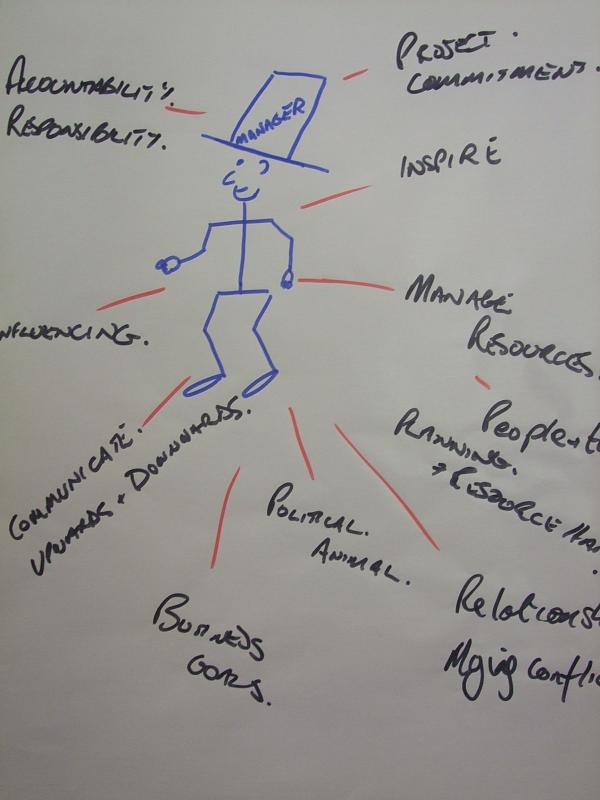 PROJECT.
COMMITMENT.
ACCOUNTABILITY.
RESPONSIBILITY.
MANAGER
INSPIRE
MANAGE
RESOURCES.
NFLUENCING.
People
PLANNING.
→ RESOURCE
COMMUNICATE.
UPWARDS + DOWNWARDS.
POLITICAL.
ANIMAL.
BUSINESS
GOALS.
Relations
Mging conflic